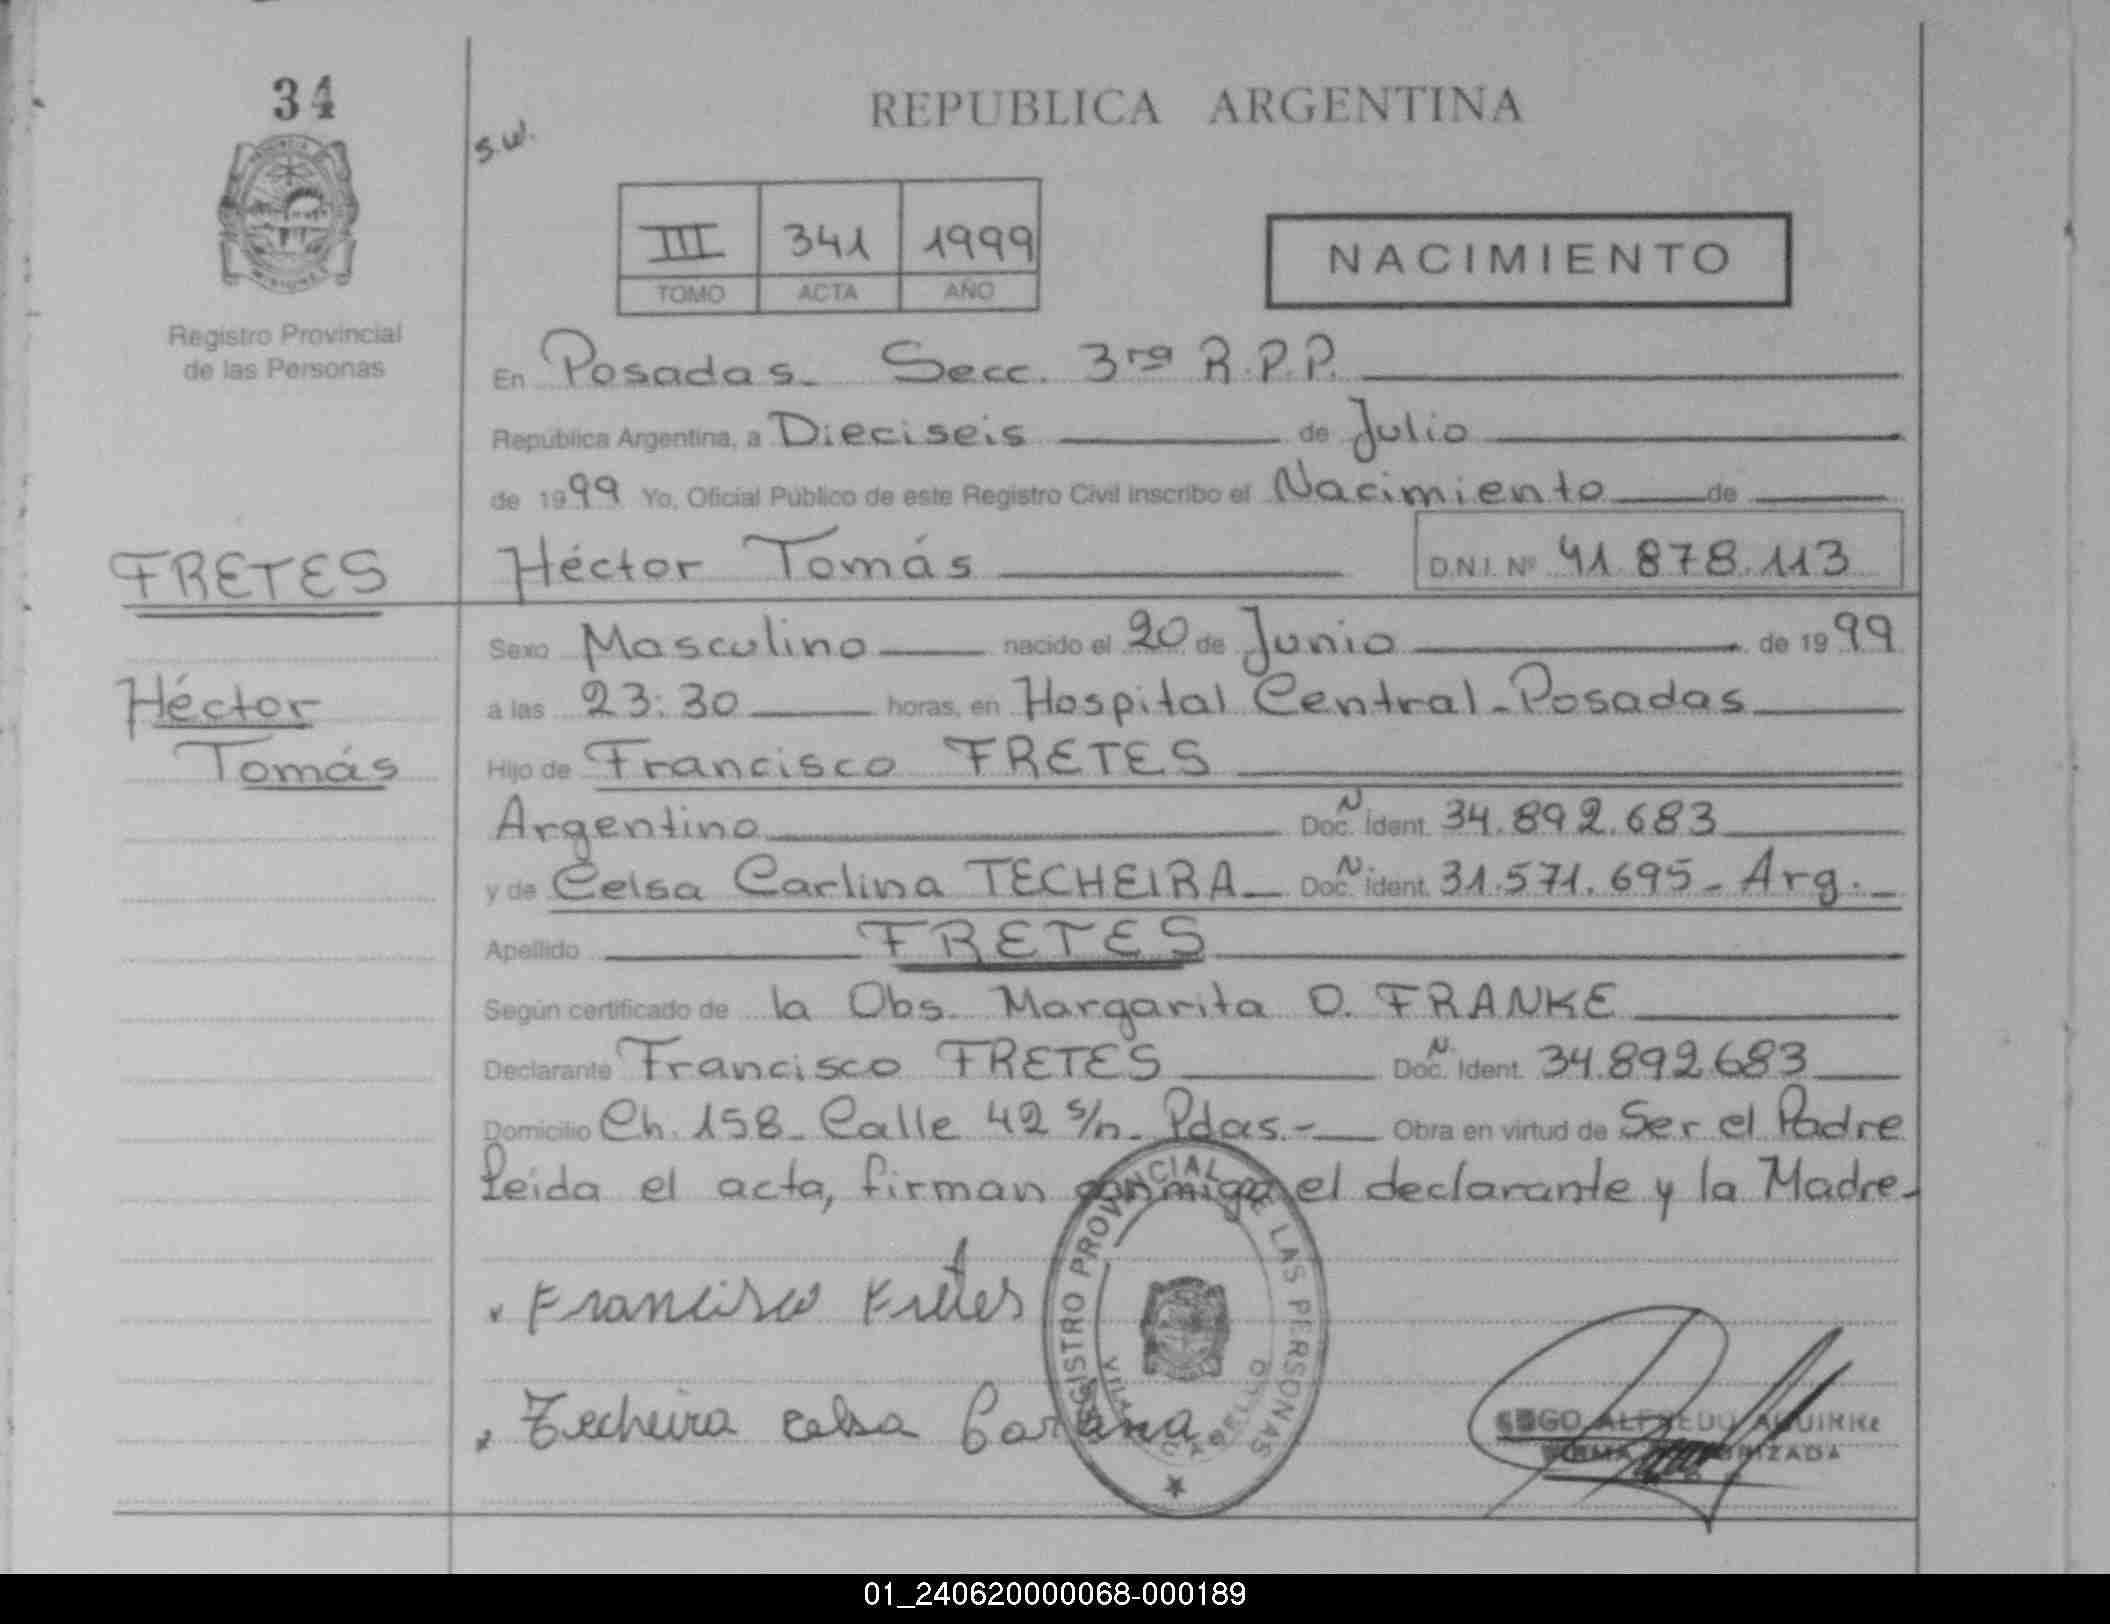 34
REPUBLICA ARGENTINA
s.w.
III 341 1999
TOMO ACTA AÑO
NACIMIENTO
Registro Provincial
de las Personas
En Posadas. Secc. 3ra R.P.P.
República Argentina, a Dieciseis de Julio
de 1999 Yo, Oficial Público de este Registro Civil inscribo el Nacimiento de
FRETES
Héctor Tomás D.N.I. Nº 41.878.113
Sexo Masculino nacido el 20 de Junio de 1999
Héctor
Tomás
a las 23:30 horas, en Hospital Central - Posadas
Hijo de Francisco FRETES
Argentino Doc. N Ident. 34.892.683
y de Celsa Carlina TECHEIRA Doc. N Ident. 31.571.695 - Arg.
Apellido FRETES
Según certificado de la Obs. Margarita O. FRANKE
Declarante Francisco FRETES Doc. N Ident. 34.892.683
Domicilio Ch. 158 - Calle 42 s/n - Pdas. - Obra en virtud de Ser el Padre
Leida el acta, firman conmigo el declarante y la Madre -
Francisco Fretes
Techeira Celsa
REGISTRO PROVINCIAL DE LAS PERSONAS
ALFREDO AGUIRRE
FIRMA AUTORIZADA
01_240620000068-000189